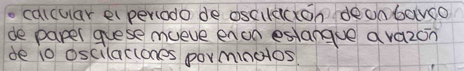 • calcular el periodo de oscilación de un barco
de papel que se mueve en un estanque a razón
de 10 oscilaciones por minutos.